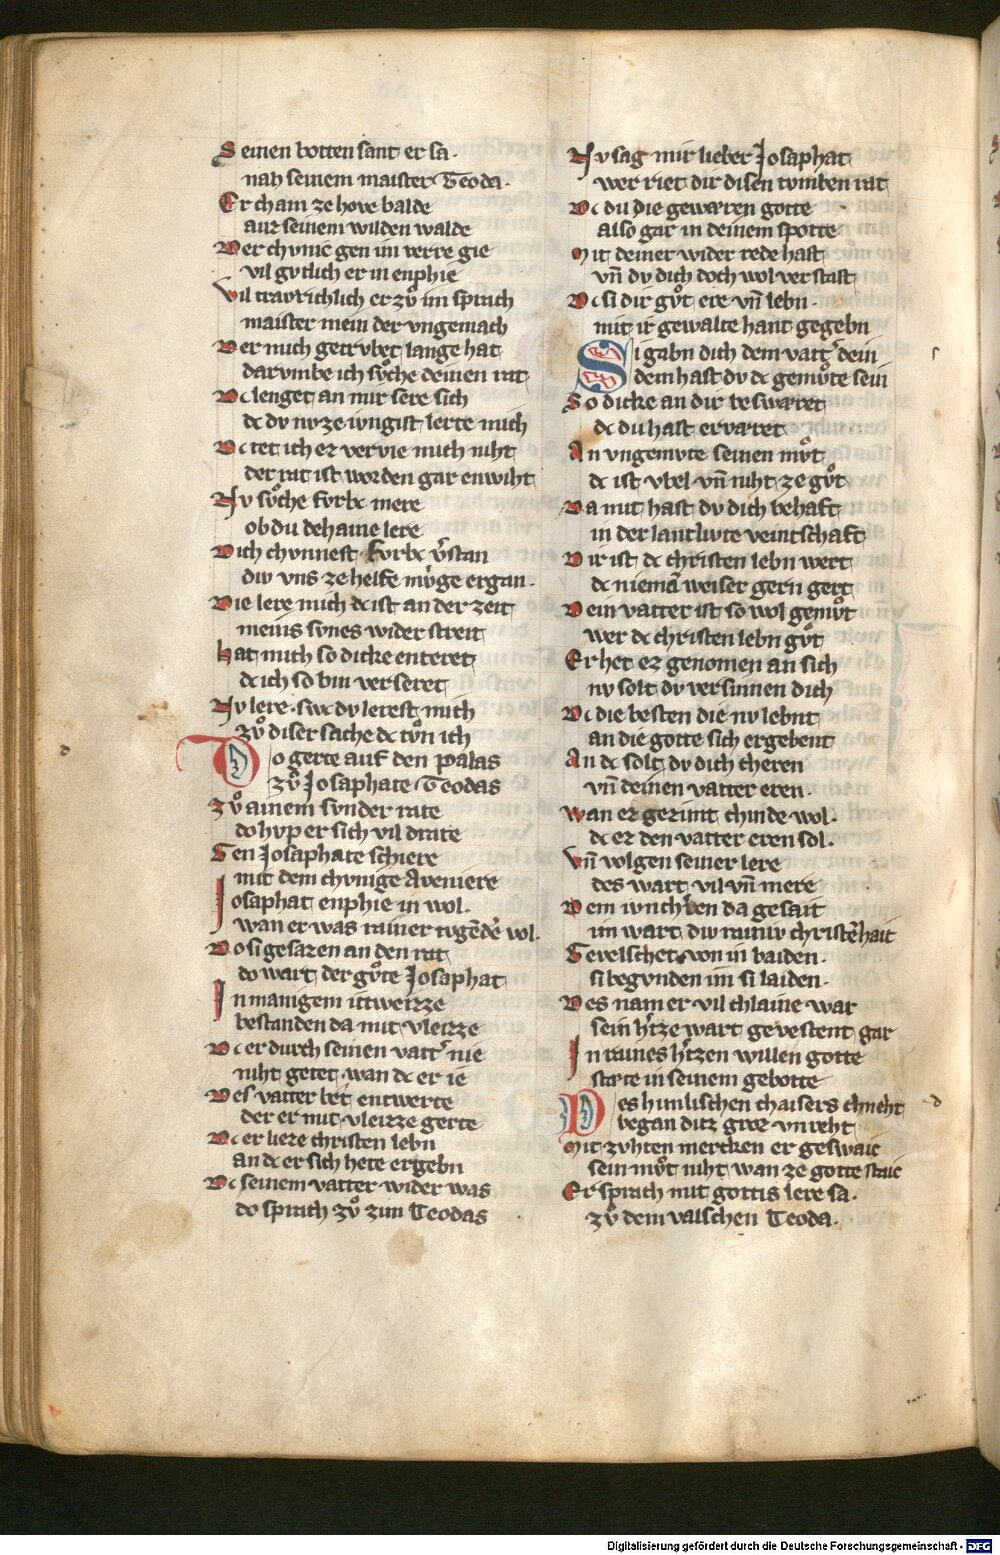 Seinen botten sant er sa.
nah seinem maister Teoda.
Er cham ze hove balde
auz seinem wilden walde
Der chvnic gen im verre gie
vil gvtlich er in enphie
Vil travrichlich er zvͦ im sprach
maister mein der vngemach
Der mich getrvbet lange hat
darvmbe ich svͦche deinen rat
Dc lenget an mir sere sich
dc dv nv ze ivngist lerte mich
Dc tet ich ez vervie mich niht
der rat ist worden gar enwiht
Nv svͦche fvrbc mere
ob du dehaine lere
Dich chvnnest fvrbc v̄stan
div vns ze helfe mvge ergan.
Die lere mich dc ist an der zeit
meins svnes wider streit
Hat mich so dicke enteret
dc ich so bin verseret
Nv lere. swc dv lerest mich
zvͦ diser sache dc tvͦn ich
Do gerte auf den palas
zvͦ Josaphate Teodas
Zvͦ ainem svnder rate
do hvp er sich vil drate
Gen Josaphate schiere
mit dem chvnige Aveniere
Josaphat enphie in wol.
wan er was rainer tvgēde vol.
Do si gesazen an den rat
do wart der gvͦte Josaphat
In manigem itweizze
bestanden da mit vleizze
Dc er durch seinen vatt̄ nie
niht getet. wan dc er ie
Des vatter bet entwerte
der er mit vleizze gerte
Dc er lieze christen lebn
an dc er sich hete ergebn
Dc seinem vatter wider was
do sprach zvͦ zim Teodas
Nv sag mir lieber Josaphat
wer riet dir disen tvmben rat
Dc du die gewaren gotte
also gar in deinem spotte
Mit deiner wider rede hast
vn̄ dv dich doch wol verstast
Dc si dir gvͦt ere vn̄ lebn.
mit ir gewalte hant gegebn
Si gabn dich dem vatt̄ dein
dem hast dv dc gemvͦte sein
So dicke an dir beswaret
dc du hast ervaret
An vngemvte seinen mvͦt
dc ist vbel vn̄ niht ze gvͦt
Da mit hast dv dich behaft
in der lantlivte veintschaft
Dir ist dc christen lebn wert
dc niemā weiser gern gert
Dein vatter ist so wol gemvͦt
wer dc christen lebn gvͦt
Er het ez genomen an sich
nv solt dv versinnen dich
Dc die besten die nv lebnt
an die gotte sich ergebent
An dc solt dv dich cheren
vn̄ deinen vatter eren.
wan ez gezimt chinde wol.
dc ez den vatter eren sol.
Vn̄ volgen seiner lere
des wart vil vn̄ mere
Dem ivnch̄ren da gesait
im wart div rainiv christēhait
Gevelschet von in baiden.
si begvnden im si laiden.
Des nam er vil chlaine war
sein h̄tze wart gevestent gar
In raines h̄tzen willen gotte
state in seinem gebotte
Des himlischen chaisers chneht
began ditz groz vnreht
Mit zvhten mercken er geswaic
sein mvͦt niht wan ze gotte staic
Er sprach mit gottis lere sa.
zvͦ dem valschen Teoda.
Digitalisierung gefördert durch die Deutsche Forschungsgemeinschaft - DFG